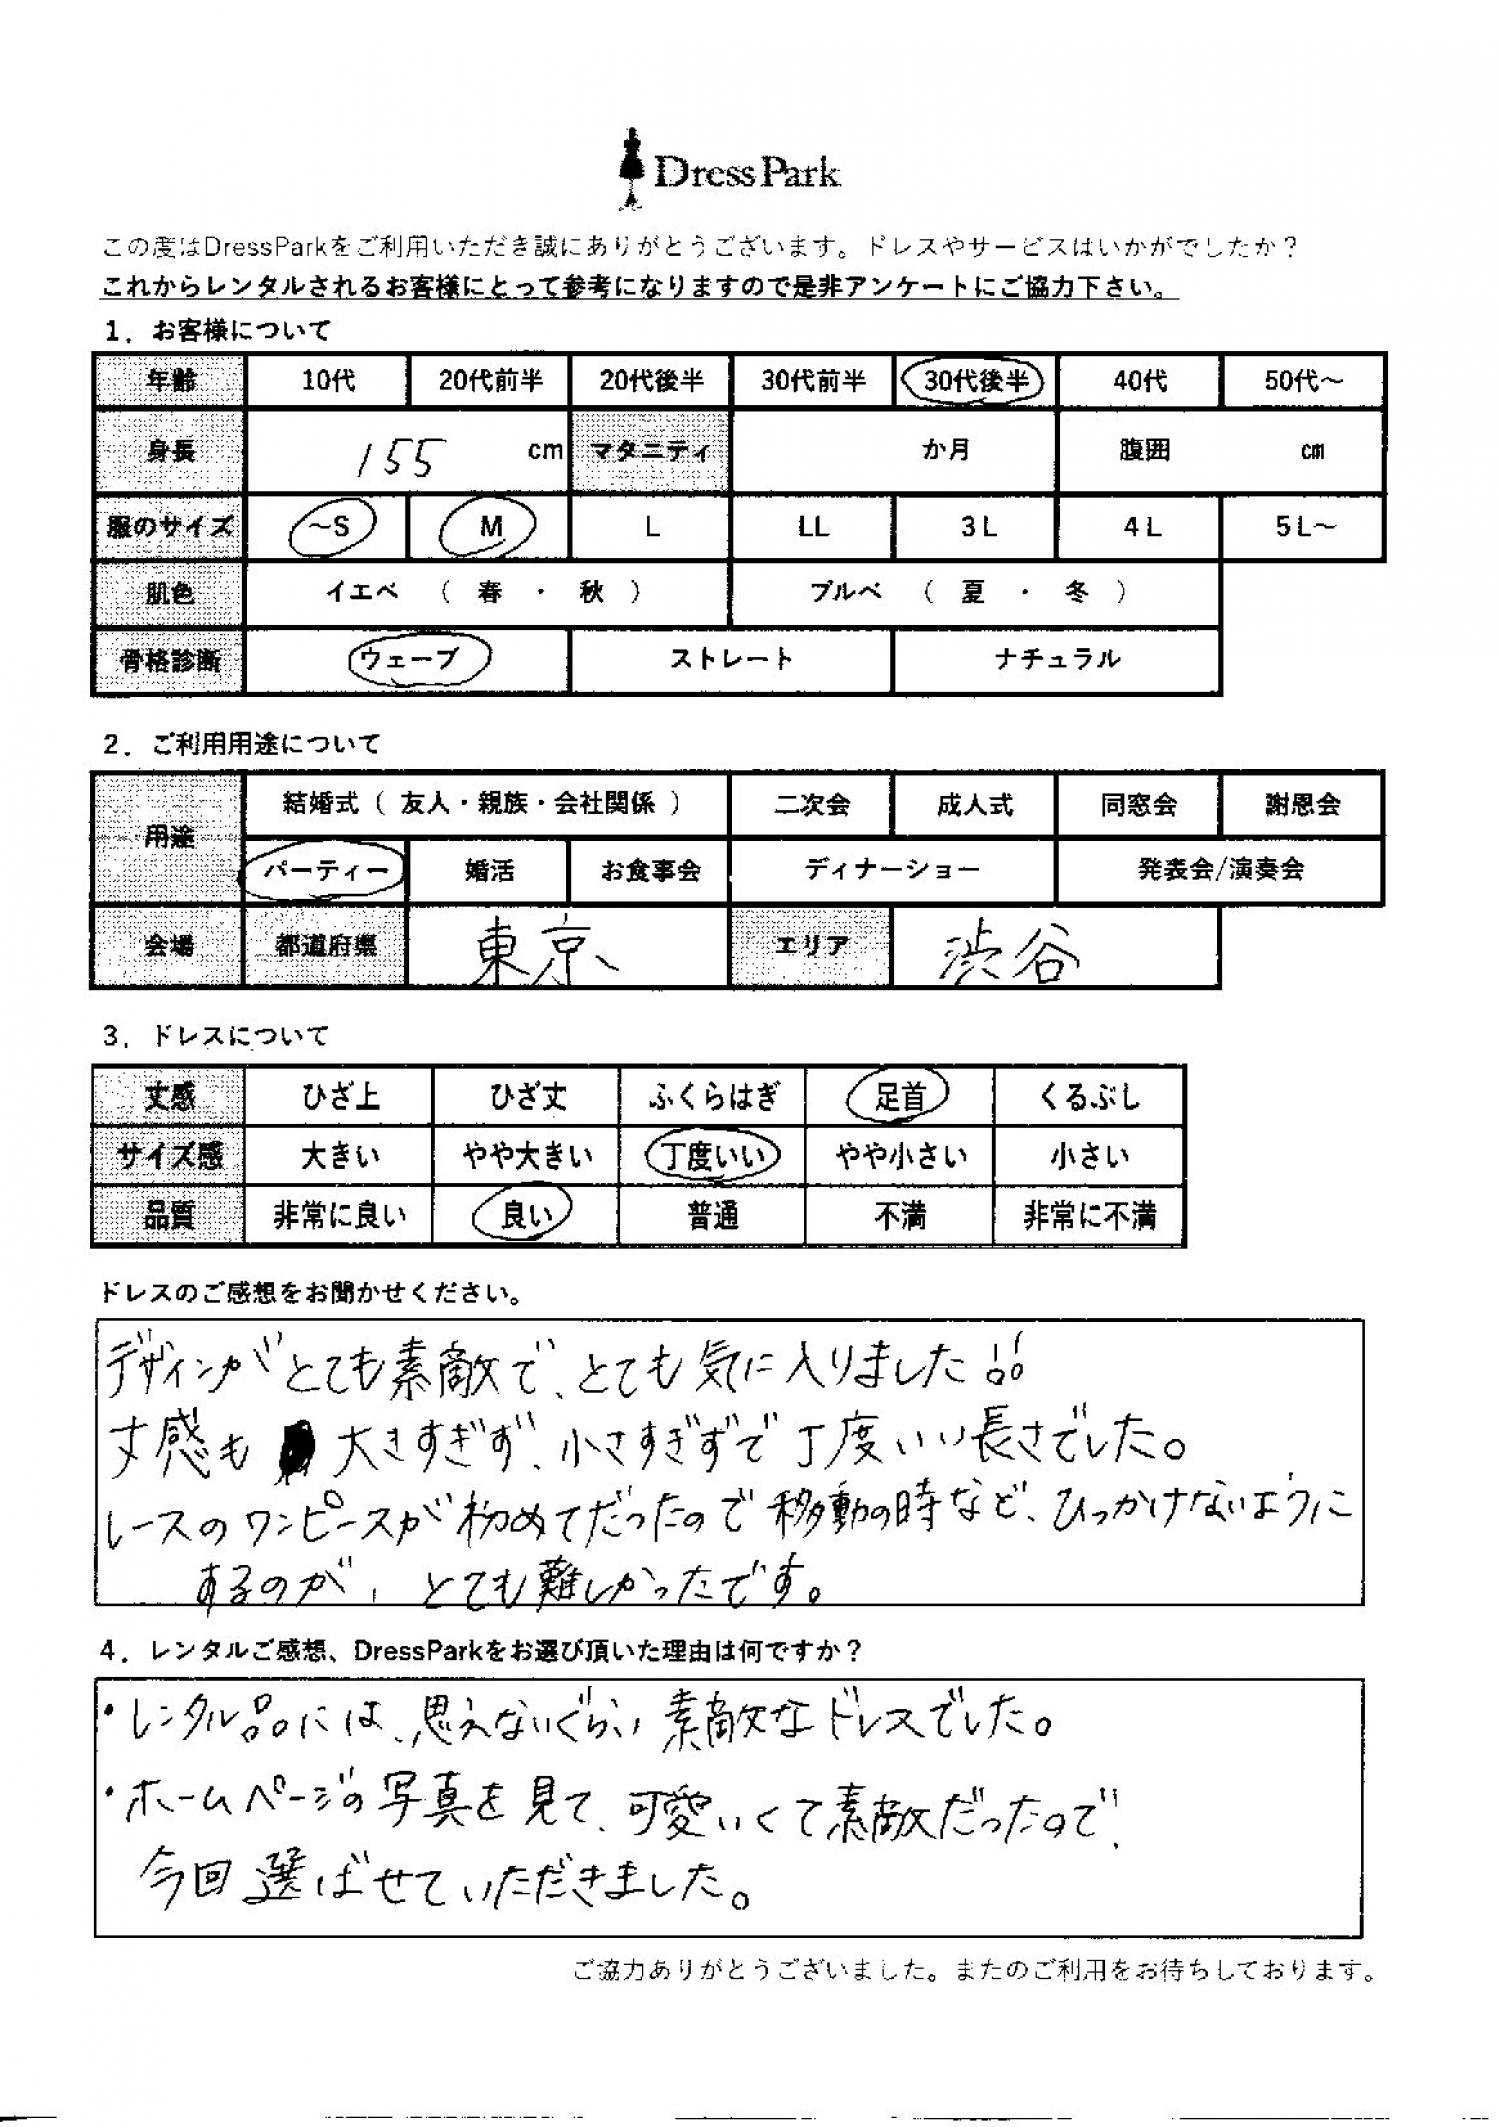 DressPark
この度はDressParkをご利用いただき誠にありがとうございます。ドレスやサービスはいかがでしたか？
これからレンタルされるお客様にとって参考になりますので是非アンケートにご協力下さい。
1．お客様について
年齢 10代 20代前半 20代後半 30代前半 30代後半 40代 50代～
身長 155 cm マタニティ か月 腹囲 cm
服のサイズ ～S M L LL 3L 4L 5L～
肌色 イエベ （ 春 ・ 秋 ） ブルベ （ 夏 ・ 冬 ）
骨格診断 ウェーブ ストレート ナチュラル
2．ご利用用途について
用途 結婚式（ 友人・親族・会社関係 ） 二次会 成人式 同窓会 謝恩会
パーティー 婚活 お食事会 ディナーショー 発表会/演奏会
会場 都道府県 東京 エリア 渋谷
3．ドレスについて
丈感 ひざ上 ひざ丈 ふくらはぎ 足首 くるぶし
サイズ感 大きい やや大きい 丁度いい やや小さい 小さい
品質 非常に良い 良い 普通 不満 非常に不満
ドレスのご感想をお聞かせください。
デザインがとても素敵で、とても気に入りました!!
丈感も 大きすぎず、小さすぎずで丁度いい長さでした。
レースのワンピースが初めてだったので移動の時など、ひっかけないように
するのが、とても難しかったです。
4．レンタルご感想、DressParkをお選び頂いた理由は何ですか？
・レンタル品には、思えないぐらい素敵なドレスでした。
・ホームページの写真を見て、可愛いくて素敵だったので、
今回選ばせていただきました。
ご協力ありがとうございました。またのご利用をお待ちしております。